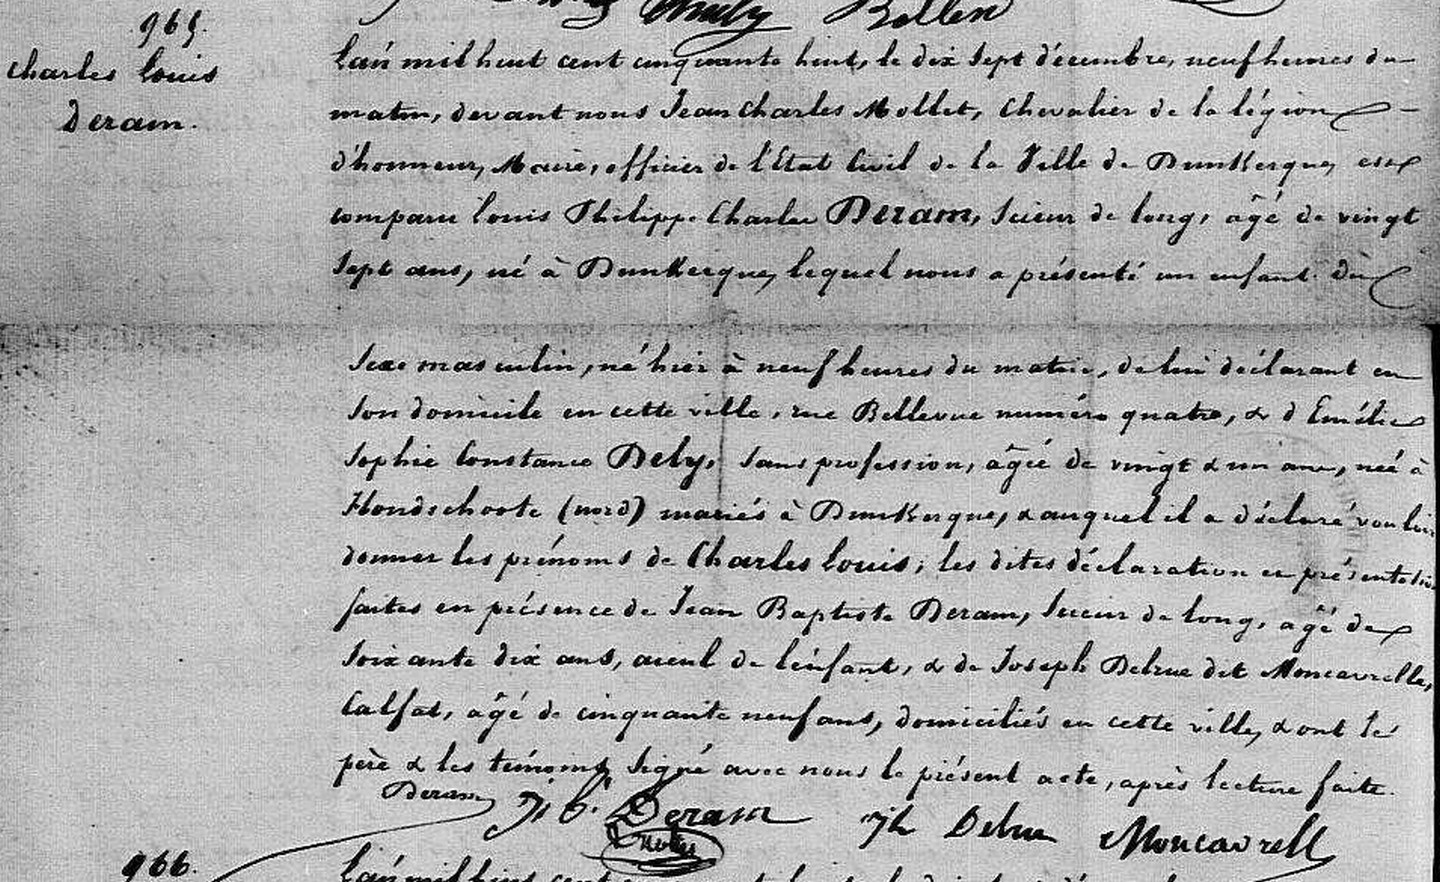 Bollen
965.
Charles Louis
Deram.
L'an mil huit cent cinquante huit, le dix sept décembre, neuf heures du
matin, devant nous Jean Charles Mollet, Chevalier de la légion
d'honneur, Maire, officier de l'Etat Civil de la Ville de Dunkerque, est
comparu Louis Philippe Charles Deram, Scieur de long, âgé de vingt
sept ans, né à Dunkerque, lequel nous a présenté un enfant du
sexe masculin, né hier à neuf heures du matin, de lui déclarant en
son domicile en cette ville, rue Bellevue numéro quatre, & d'Emélie
Sophie Constance Dely, sans profession, âgée de vingt & un ans, née à
Hondschoote (nord) mariés à Dunkerque, & auquel il a déclaré vouloir
donner les prénoms de Charles Louis; les dites déclaration et présentation
faites en présence de Jean Baptiste Deram, Scieur de long, âgé de
soixante dix ans, aieul de l'enfant, & de Joseph Delrue dit Moncavrelle,
Calfat, âgé de cinquante neuf ans, domiciliés en cette ville, & ont le
père & les témoins signé avec nous le présent acte, après lecture faite.
Deram J B Deram Jh Delrue Moncavrell
966.
L'an mil huit cent